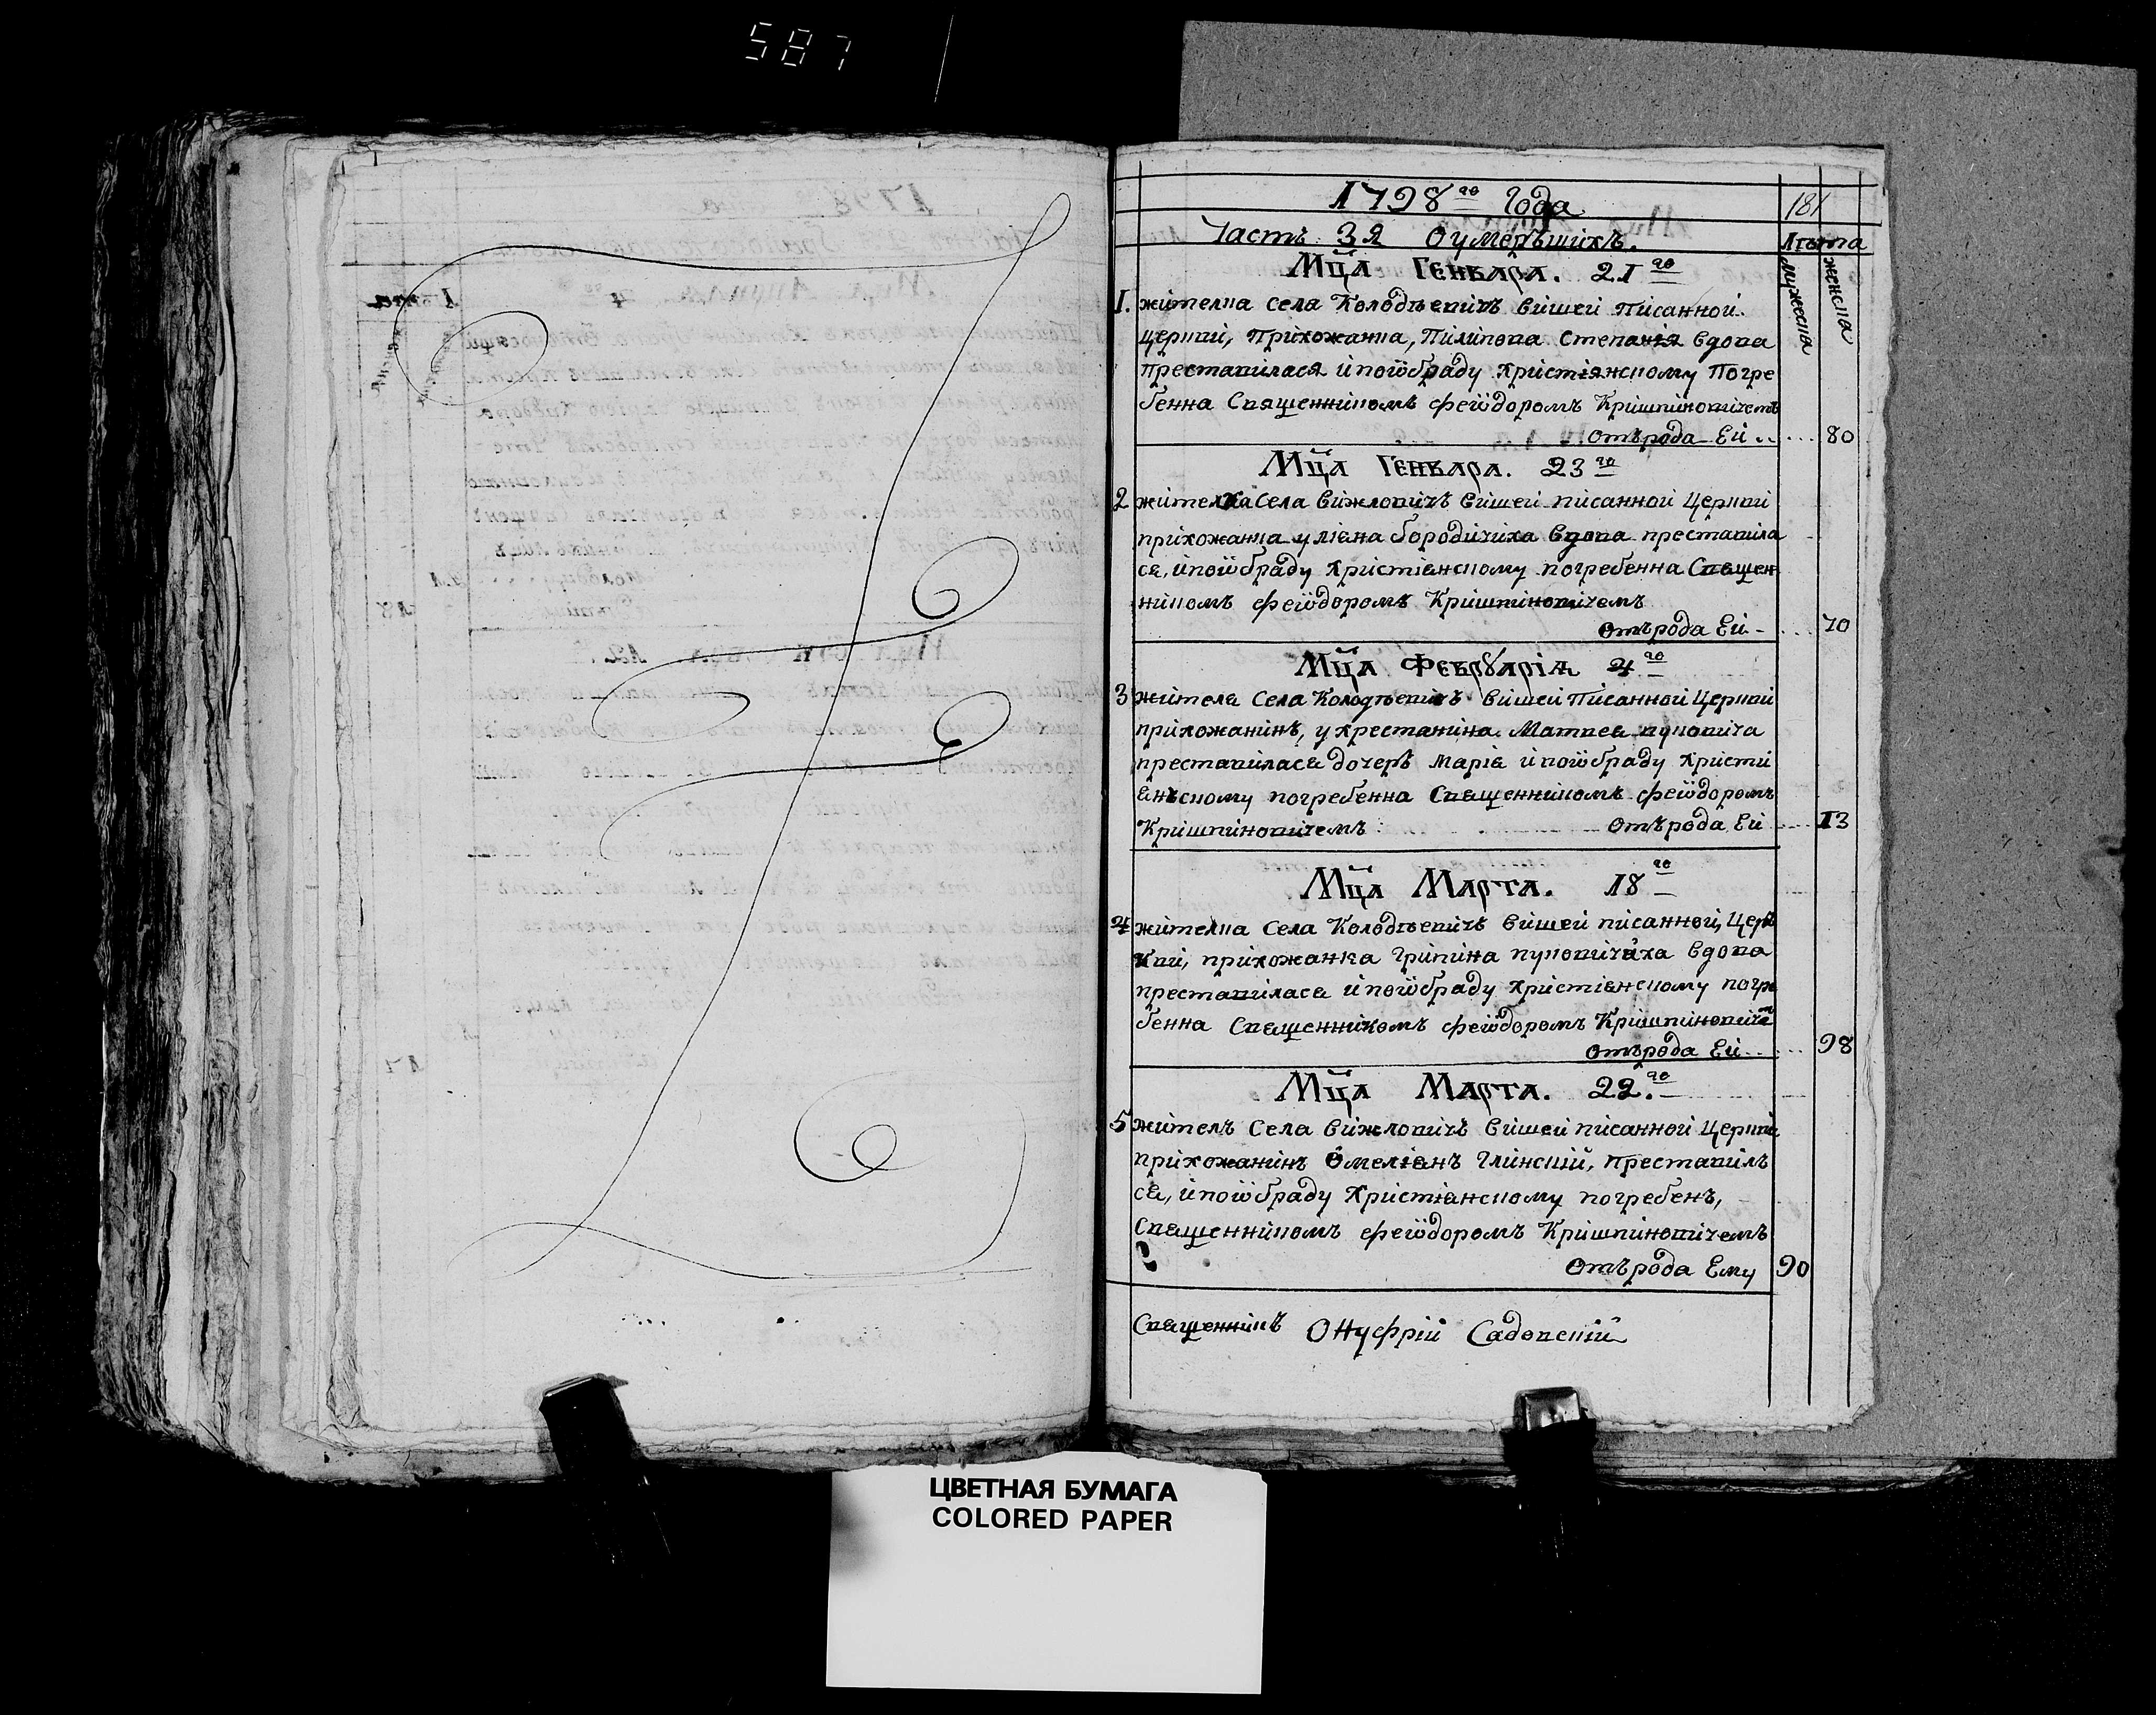 587
1798го Года
181
Часть 3я Оумершихъ.
Лѣта
мужеска
женска
Мц҃а Генваря. 21го
1. жителка села Колодѣевичъ вишей писанной
церкви, Прихожанка, Пилипова Степанія вдова
преставилася и поѡбряду христіянскому Погре
бенна Священникомъ феѡдоромъ Кришпиновичемъ
Отърода Ей .. 80
Мц҃а Генваря. 23го
2 жителка Села Вижловичъ вишей писанной Церкви
прихожанка уляна бородичиха вдова преставила
ся, и поѡбряду христіянскому погребенна Священ
никомъ феѡдоромъ Кришпиновичемъ
Отърода Ей 70
Мц҃а Февруаріа 4го
3 жителя Села Колодѣевичъ вишей Писанной Церкви
прихожанинъ, у крестянина Матвея куновича
преставилася дочеръ марія и поѡбряду христи
янъскому погребенна Священникомъ феѡдоромъ
Кришпиновичемъ Отърода Ей 13
Мц҃а Марта. 18го
4 жителка Села Колодѣевичъ вишей писанной, Церъ
кви, прихожанка Грипина куновичиха вдова
преставилася и поѡбряду христіянскому погре
бенна Священникомъ феѡдоромъ Кришпиновичемъ
Отърода Ей 98
Мц҃а Марта. 22.го
5 жителъ Села Вижловичъ вишей писанной Церкви
прихожанинъ Омелянъ Глинский, преставилъ
ся, и поѡбряду христіянскому погребенъ,
Священникомъ феѡдоромъ Кришпиновичемъ
Отърода Ему 90
Священникъ Онуфрій Садовскій
ЦВЕТНАЯ БУМАГА
COLORED PAPER